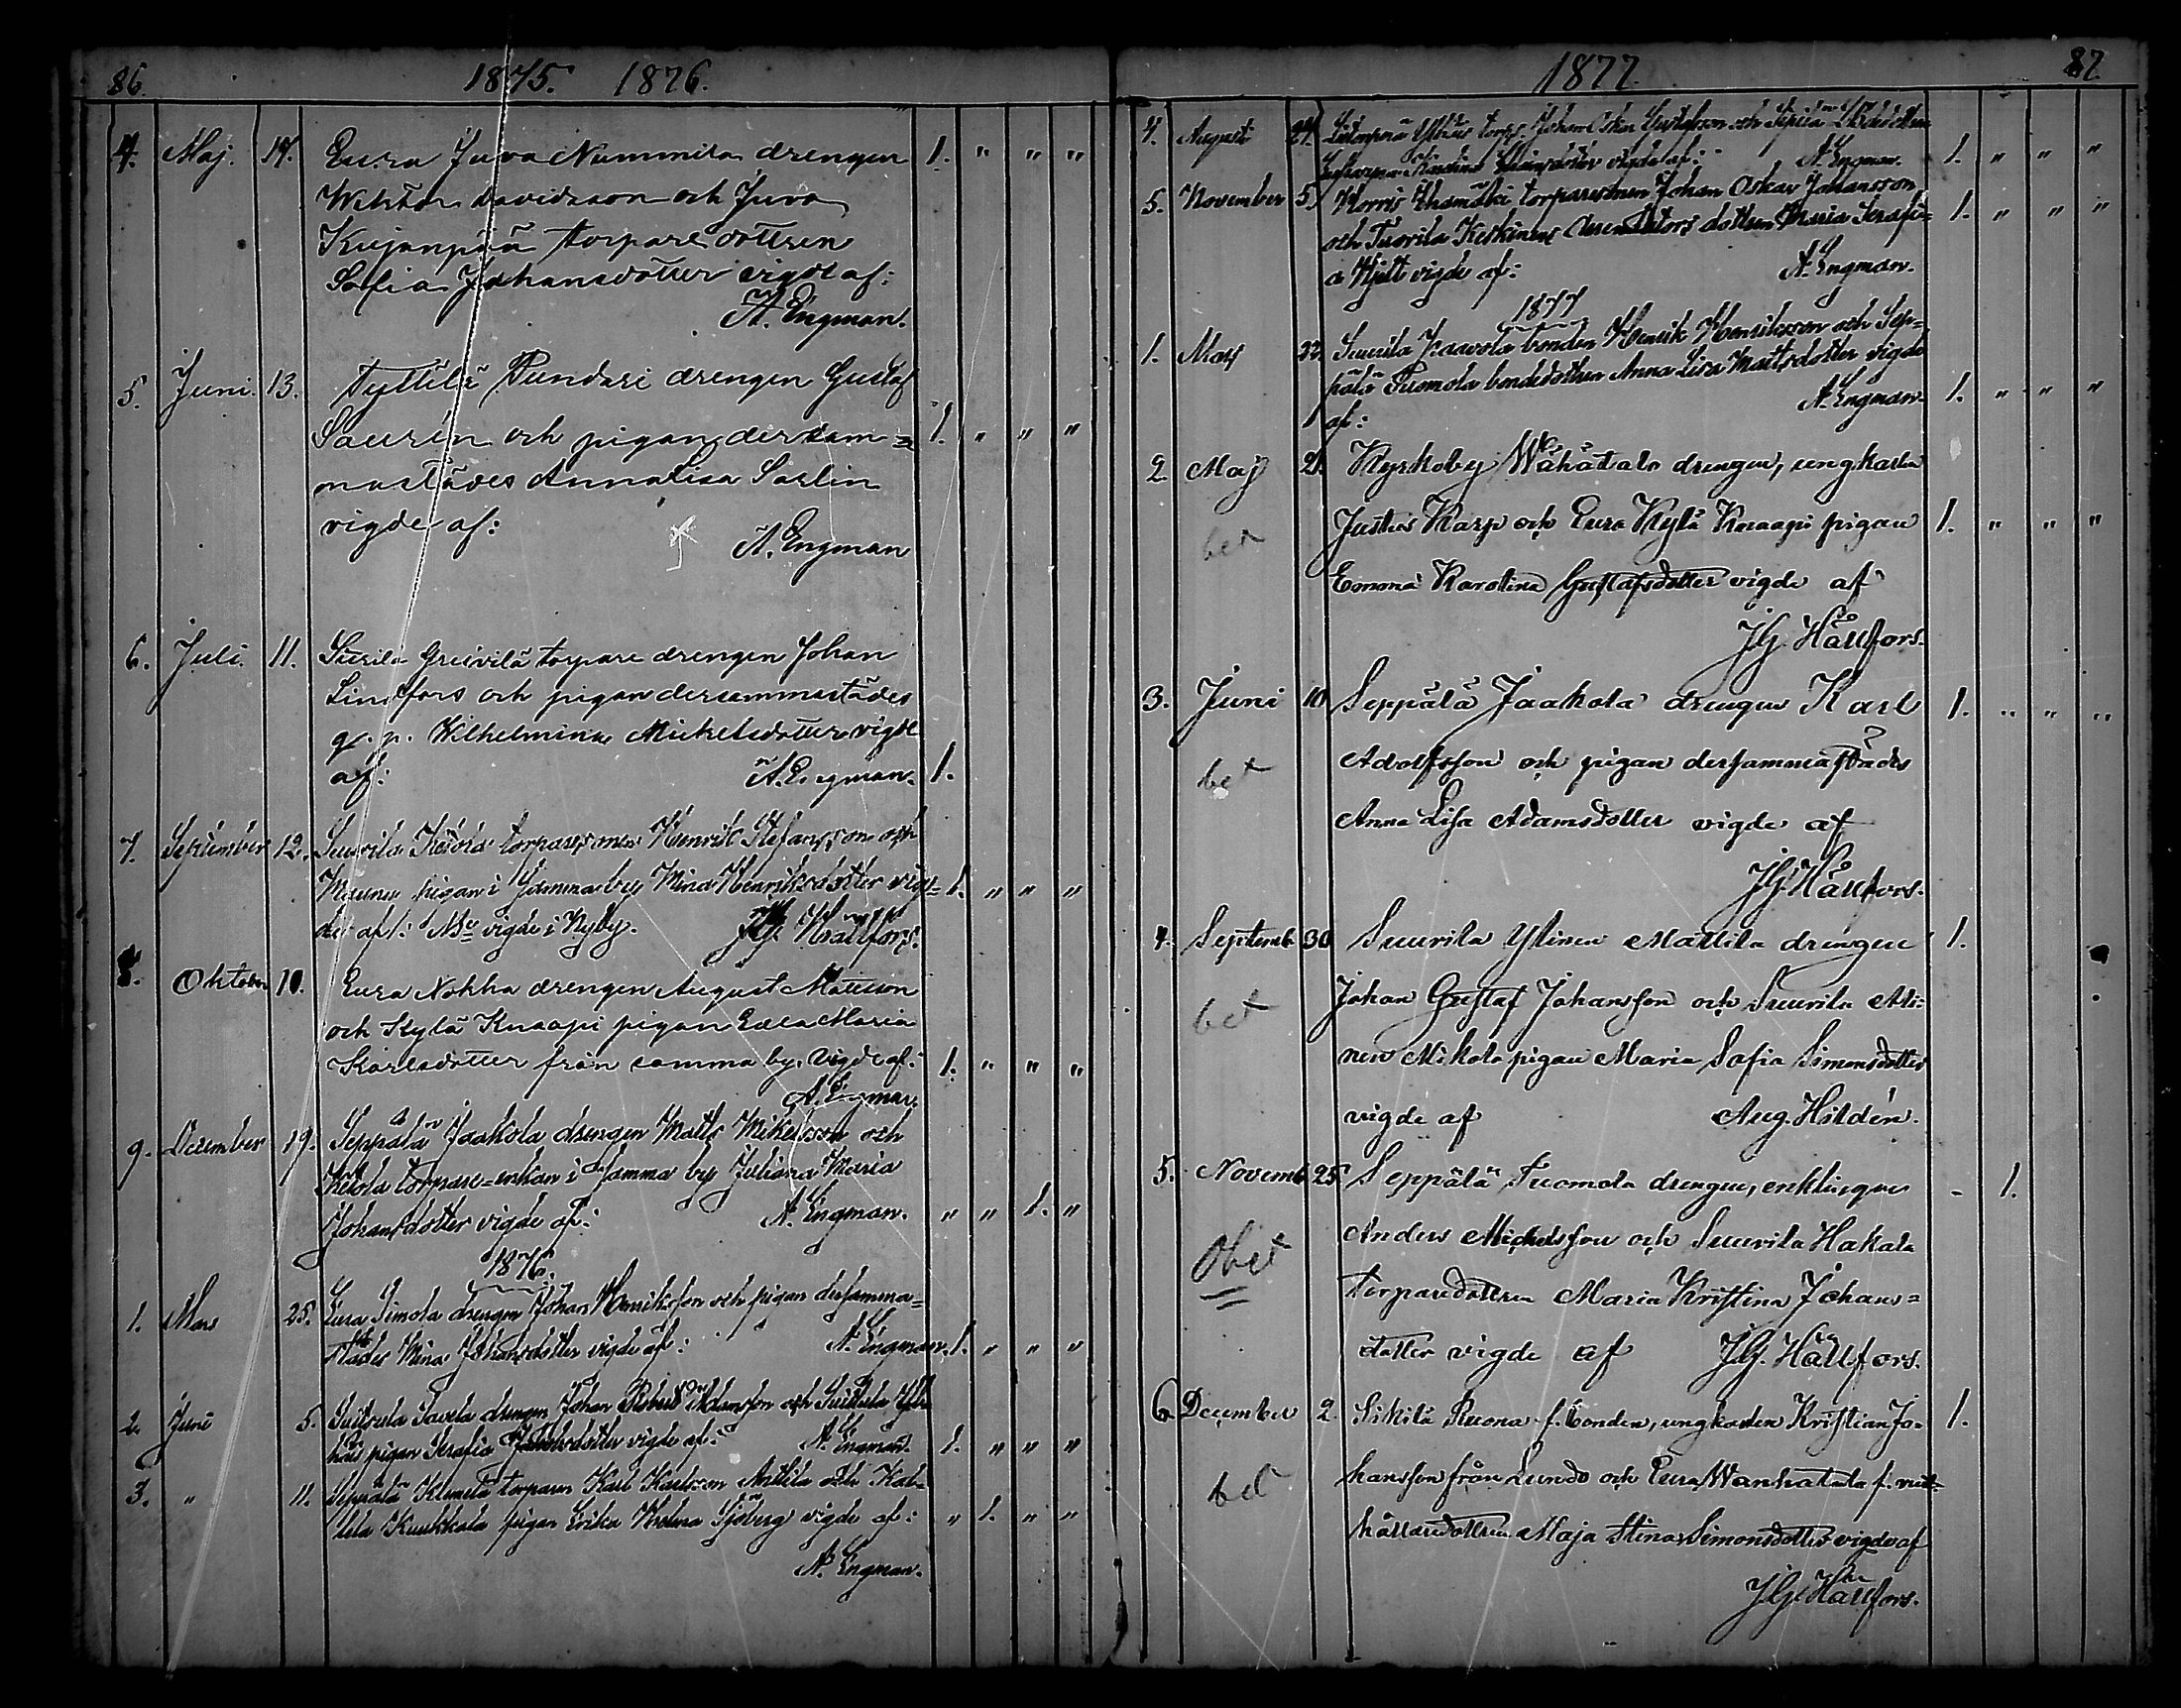 86. 1875. 1876.
4. Maj. 14. Eura Juva Nummila drengen 1. " " "
Wiktor Davidsson och Juva
Kujanpää torpare dottren
Sofia Johansdotter vigde af:
A. Engman.
5. Juni. 13. Tyttilä Pundari drengen Gustaf
Saurén och pigan dersam= 1. " " "
mastädes Annalisa Sarlin
vigde af:
A. Engman
6. Juli. 11. torpare drengen Johan
Lindfors och pigan dersammastädes
q. p. Vilhelmina Mickelsdotter vigde
af: A. Engman. 1.
7. September 12. Suurila torparesonen Henrik Stefansson och
pigan i samma by Mina Henriksdotter vig= 1. " " "
de af: vigde i Nyby. J.G. Hällfors.
8. Oktober 10. Eura Nohka drengen August Matsson
och Kylä Knaapi pigan Edla Maria
Karlsdotter från samma by. Vigde af: 1. " " "
A. Engman.
9. December 19. Seppälä Jaakola drengen Matts Mikelsson och
Ketola torpare=enkan i samma by Juliana Maria
Johansdotter vigde af: A. Engman. " " 1. "
1876.
1. Mars 25. Eura Simola drengen Johan Henriksson och pigan dersamma=
städes Mina Johansdotter vigde af: A. Engman. 1. " " "
2. Juni 5. Suitsula Savela drengen Johan och Suitsula
pigan Serafia vigde af: A. Engman. 1. " " "
3. " 11. Seppälä torparen Karl Karlsson Anttila och
Kuukkala pigan Erika Sjöberg vigde af: " 1. " "
A. Engman.
1877. 87.
4. Augusti 24. torp. Johan Oskar Gustafsson och
vigde af: A. Engman. 1. " " "
5. November 5. torparesonen Johan Oskar Johansson
och Tuorila Keskinen dottren Maria Serafi= 1. " " "
a vigde af: A. Engman.
1877
1. Mars 22. Suurila bonden Henrik Henriksson och Sep=
pälä Tuomola bondedottren Anna Lisa Mattsdotter vigde
af: A. Engman. 1. " " "
2. Maj 21. Kyrkoby Wähätalo drengen, ungkarlen
bet Justus Karp och Eura Kylä Knaapi pigan 1. " " "
Emma Karolina Gustafsdotter vigde af
J.G. Hällfors.
3. Juni 10 Seppälä Jaakola drengen Karl 1. " " "
bet Adolfsson och pigan dersammastädes
Anna Lisa Adamsdotter vigde af
J.G. Hällfors.
4. Septemb. 30 Suurila Ylinen Mattila drengen 1.
bet Johan Gustaf Johansson och Suurila Ali=
nen Mikola pigan Maria Sofia Simonsdotter
vigde af Aug. Hildén.
5. Novemb. 25. Seppälä Tuomola drengen, enklingen - 1.
Obet Anders Michelsson och Suurila Hakala
torparedottren Maria Kristina Johans=
dotter vigde af J.G. Hällfors.
6. December 2. Sikilä Ruona f. bonden, ungkarlen Kristian Jo= 1.
bet hansson från Lundo och Eura Wanhatalo f. rust=
hållaredottren Maja Stina Simonsdotter vigde af
J.G. Hällfors.